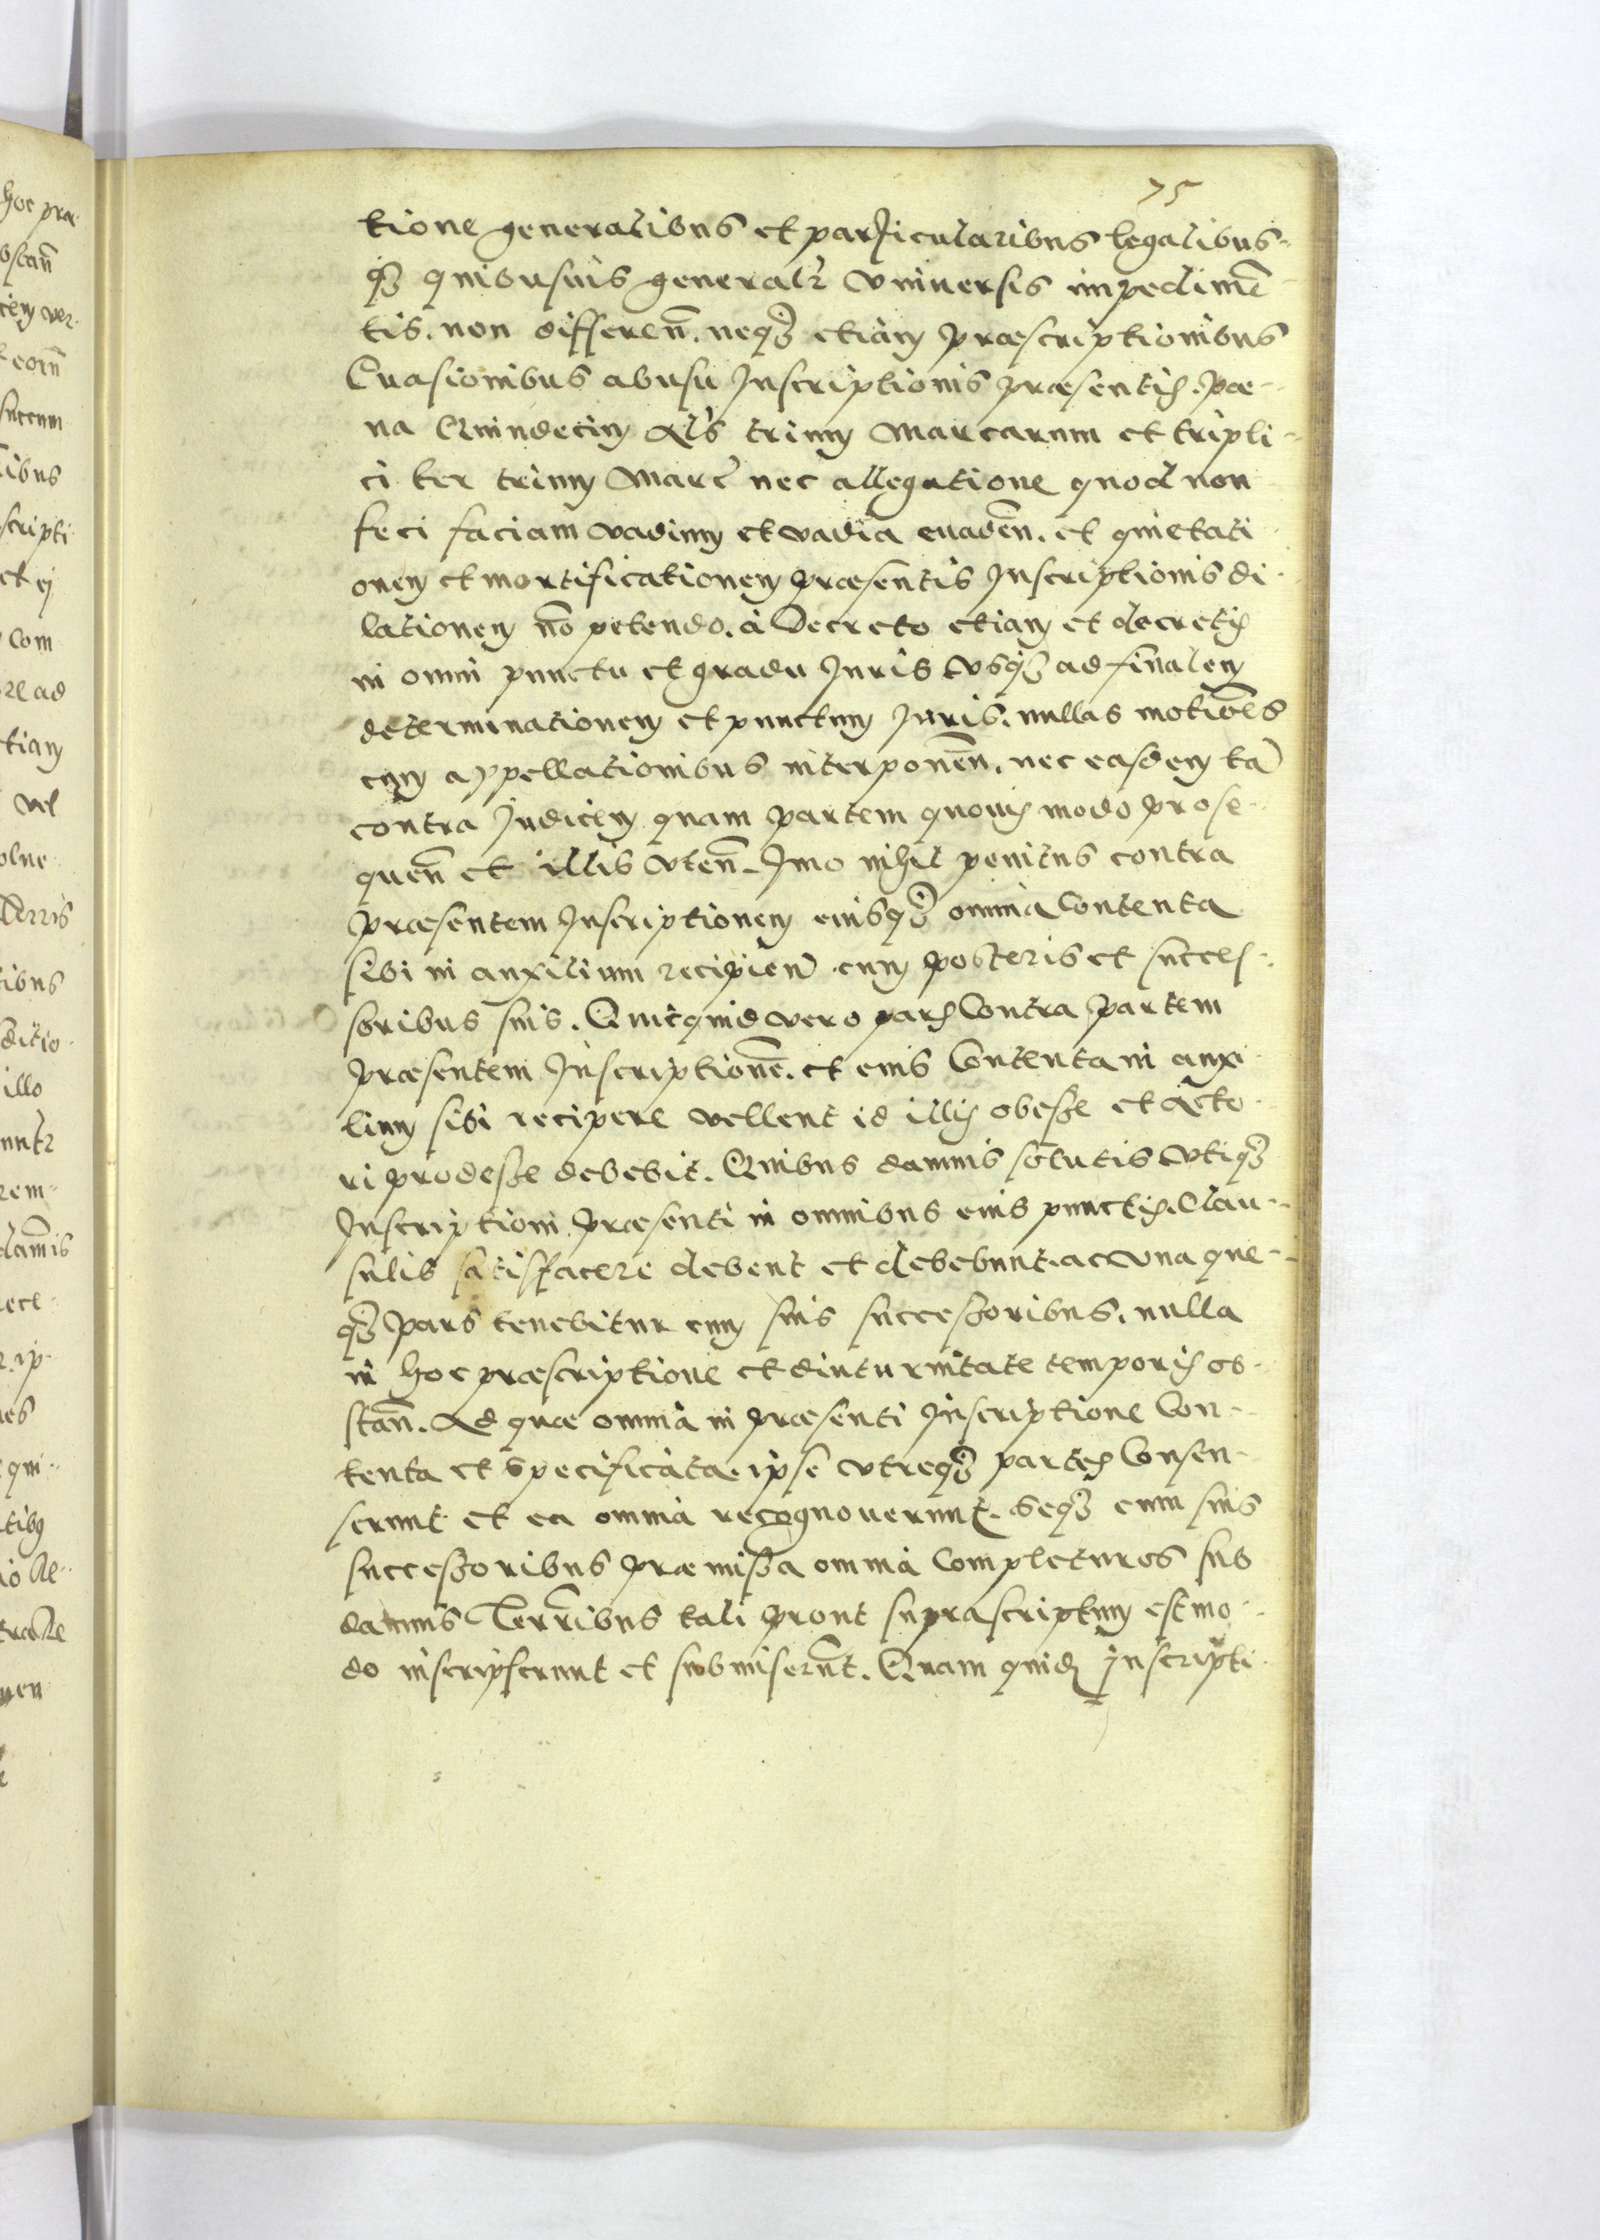 75
tione generalibus et particularibus legalibus
q3 quibusuis generalr vniuersis impedimē
tis. non differen̄. neq3 etiam præscriptionibus
Euasionibus abusu Inscriptionis præsentis. pæ-
na Quindecim als trium Marcarum et tripli-
ci ter trium Marc nec allegatione quod non
feci faciam vadium et vadia euaden̄. et quietati
onem et mortificationem præsentis Inscriptionis di
lationem nō petendo. à Decreto etiam et decretis
in omni punctu et gradu Juris vsq3 ad finalem
determinationem et punctum Juris. nullas motiōes
cum appellationibus interponen̄. nec easdem tā
contra Judicem quam partem quouis modo prose-
quen̄ et illis vten̄. Imo nihil penitus contra
præsentem Inscriptionem eiusq3 omnia Contenta
sibi in auxilium recipien̄ cum posteris et succes-
soribus suis. Quicquid vero pars Contra partem
præsentem Inscriptionē. et eius Contenta in auxi
lium sibi recipere vellent id illis obesse et Acto-
ri prodesse debebit. Quibus damnis solutis vtiq3
Inscriptioni præsenti in omnibus eius punctis. Clau-
sulis satisfacere debent et debebunt. ac vna que-
q3 pars tenebitur cum suis successoribus. nulla
in hoc præscriptione et diuturnitate temporis ob-
stan̄. Ad quæ omnia in præsenti Inscriptione Con-
tenta et Specificata. ipse vtreq3 partes Consen-
serunt et ea omnia recognouerunt. Seq3 cum suis
successoribus præmissa omnia Completuros sub
damnis Terrribus tali prout suprascriptum est mo-
do inscripserunt et submiserūt. Quam quid Inscripti